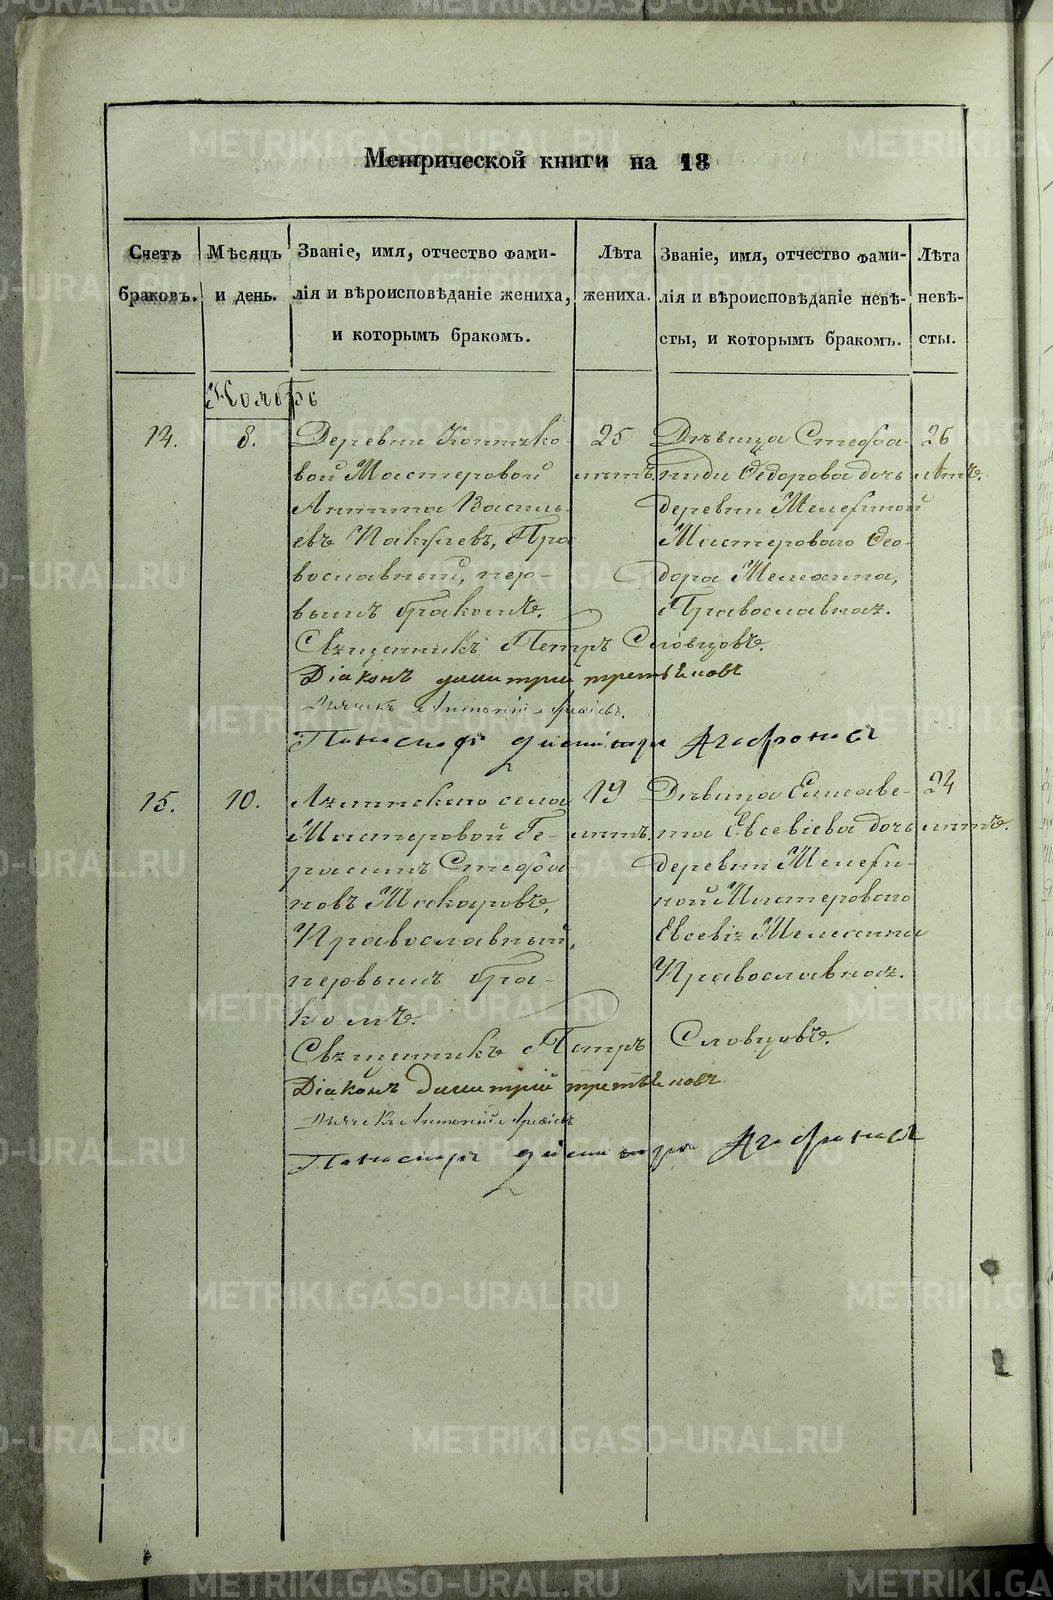 Метрической книги на 18
Счетъ браковъ.
Мѣсяцъ и день.
Званіе, имя, отчество фами-
лія и вѣроисповѣданіе жениха,
и которымъ бракомъ.
Лѣта жениха.
Званіе, имя, отчество фами-
лія и вѣроисповѣданіе невѣ-
сты, и которымъ бракомъ.
Лѣта невѣ-
сты.
Ноябрь
14.
8.
Деревни
вой Мастеровой
Антипа Василь-
евъ Пакулевъ, Пра
вославный, пер-
вымъ бракомъ.
25
лѣтъ.
Дѣвица Стефа-
нида Ѳедорова дочь
деревни
Мастероваго Ѳео-
дора
Православная.
26
лѣтъ.
Священникъ Петръ Словцовъ.
Діаконъ Димитрій Третьяковъ
Дьячекъ Антоній
Пономарь
15.
10.
села
Мастеровой Ге-
расимъ Стефа
новъ Макаровъ,
Православный,
первымъ бра-
комъ.
19
лѣтъ.
Дѣвица Елисаве-
та Евсевіева дочь
деревни
ной Мастероваго
Евсевія
Православная.
24
лѣтъ.
Священникъ Петръ Словцовъ.
Діаконъ Димитрій Третьяковъ
Дьячекъ Антоній
Пономарь
METRIKI.GASO-URAL.RU